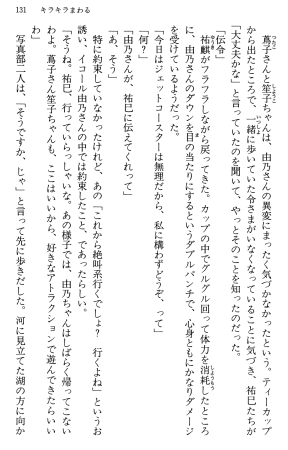 131　キラキラまわる
蔦子さんと笙子ちゃんは、由乃さんの異変にまったく気づかなかったという。ティーカップ
から出たところで、一緒に歩いていた令さまがいなくなっていることに気づき、祐巳たちが
「大丈夫かな」と言っていたのを聞いて、やっとそのことを知ったのだった。
「伝令」
祐麒がフラフラしながら戻ってきた。カップの中でグルグル回って体力を消耗したところ
に、由乃さんのダウンを目の当たりにするというダブルパンチで、心身ともにかなりダメージ
を受けているようだった。
「今日はジェットコースターは無理だから、私に構わずどうぞ、って」
「何？」
「由乃さんが、祐巳に伝えてくれって」
「あ、そう」
特に約束していなかったけれど、あの「これから絶叫系行くでしょ？　行くよね」というお
誘い、イコール由乃さんの中では約束したこと、であったらしい。
「そうね。祐巳、行っていらっしゃいな。あの様子では、由乃ちゃんはしばらく帰ってこない
わよ。蔦子さん笙子ちゃんも、ここはいいから、好きなアトラクションで遊んできたらいい
わ」
写真部二人は、「そうですか、じゃ」と言って先に歩きだした。河に見立てた湖の方に向か